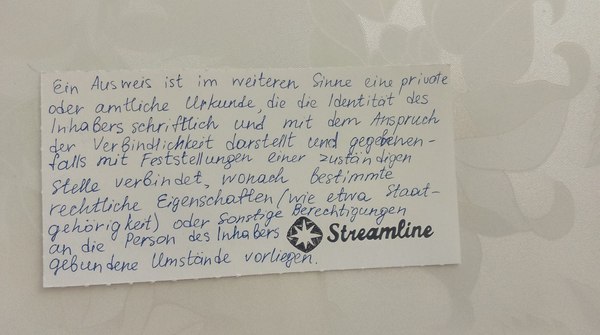 Ein Ausweis ist im weiteren Sinne eine private
oder amtliche Urkunde, die die Identität des
Inhabers schriftlich und mit dem Anspruch
der Verbindlichkeit darstellt und gegebenen-
falls mit Feststellungen einer zuständigen
Stelle verbindet, wonach bestimmte
rechtliche Eigenschaften (wie etwa Staat-
gehörigkeit) oder sonstige Berechtigungen
an die Person des Inhabers
Streamline
gebundene Umstände vorliegen.